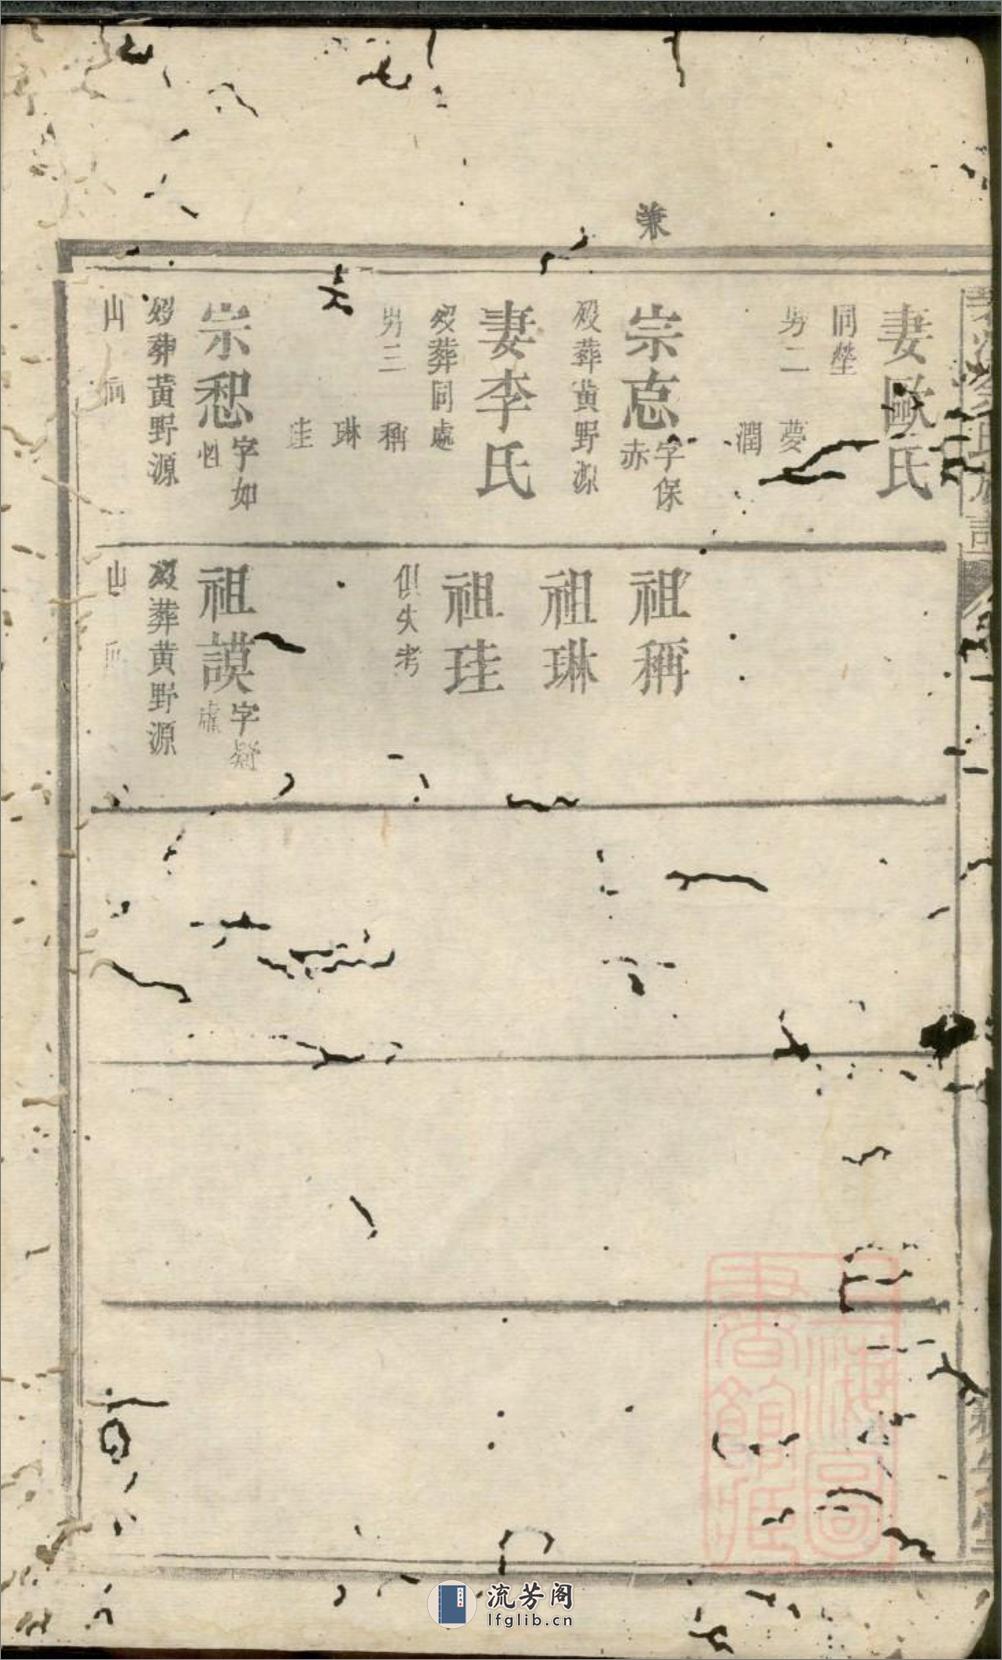 兼
妻歐氏
同塋
男二 夢
潤
宗㤅 字保
赤
歿葬黄野源
妻李氏
歿葬同處
男三 稱
琳
珪
宗恕 字如
歿葬黄野源
山
祖稱
祖琳
祖珪
俱失考
祖謨 字疑
歿葬黄野源
山
上海圖
書館藏
流芳阁
lfglib.cn